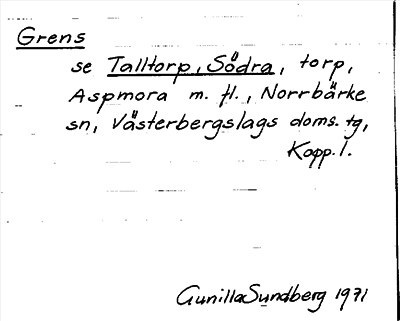 Grens
se Talltorp, Södra, torp,
Aspmora m. fl., Norrbärke
sn, Västerbergslags doms. tg,
Kopp. l.
Gunilla Sundberg 1971